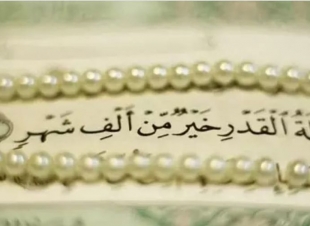 ةُ ٱلْقَدْرِ خَيْرٌ مِّنْ أَلْفِ شَهْرٍ